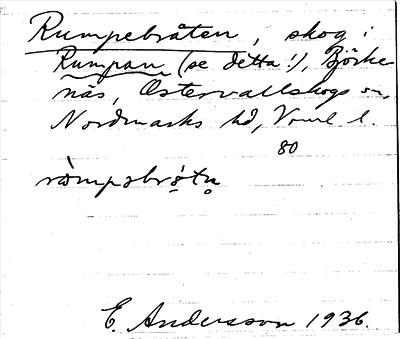 Rumpebråten, skog i
Rumpan (se detta!), Björke-
näs, Östervallskogs sn,
Nordmarks hd, Vrml l.
80
ròmpabrǫ́tn̥
E. Andersson 1936.